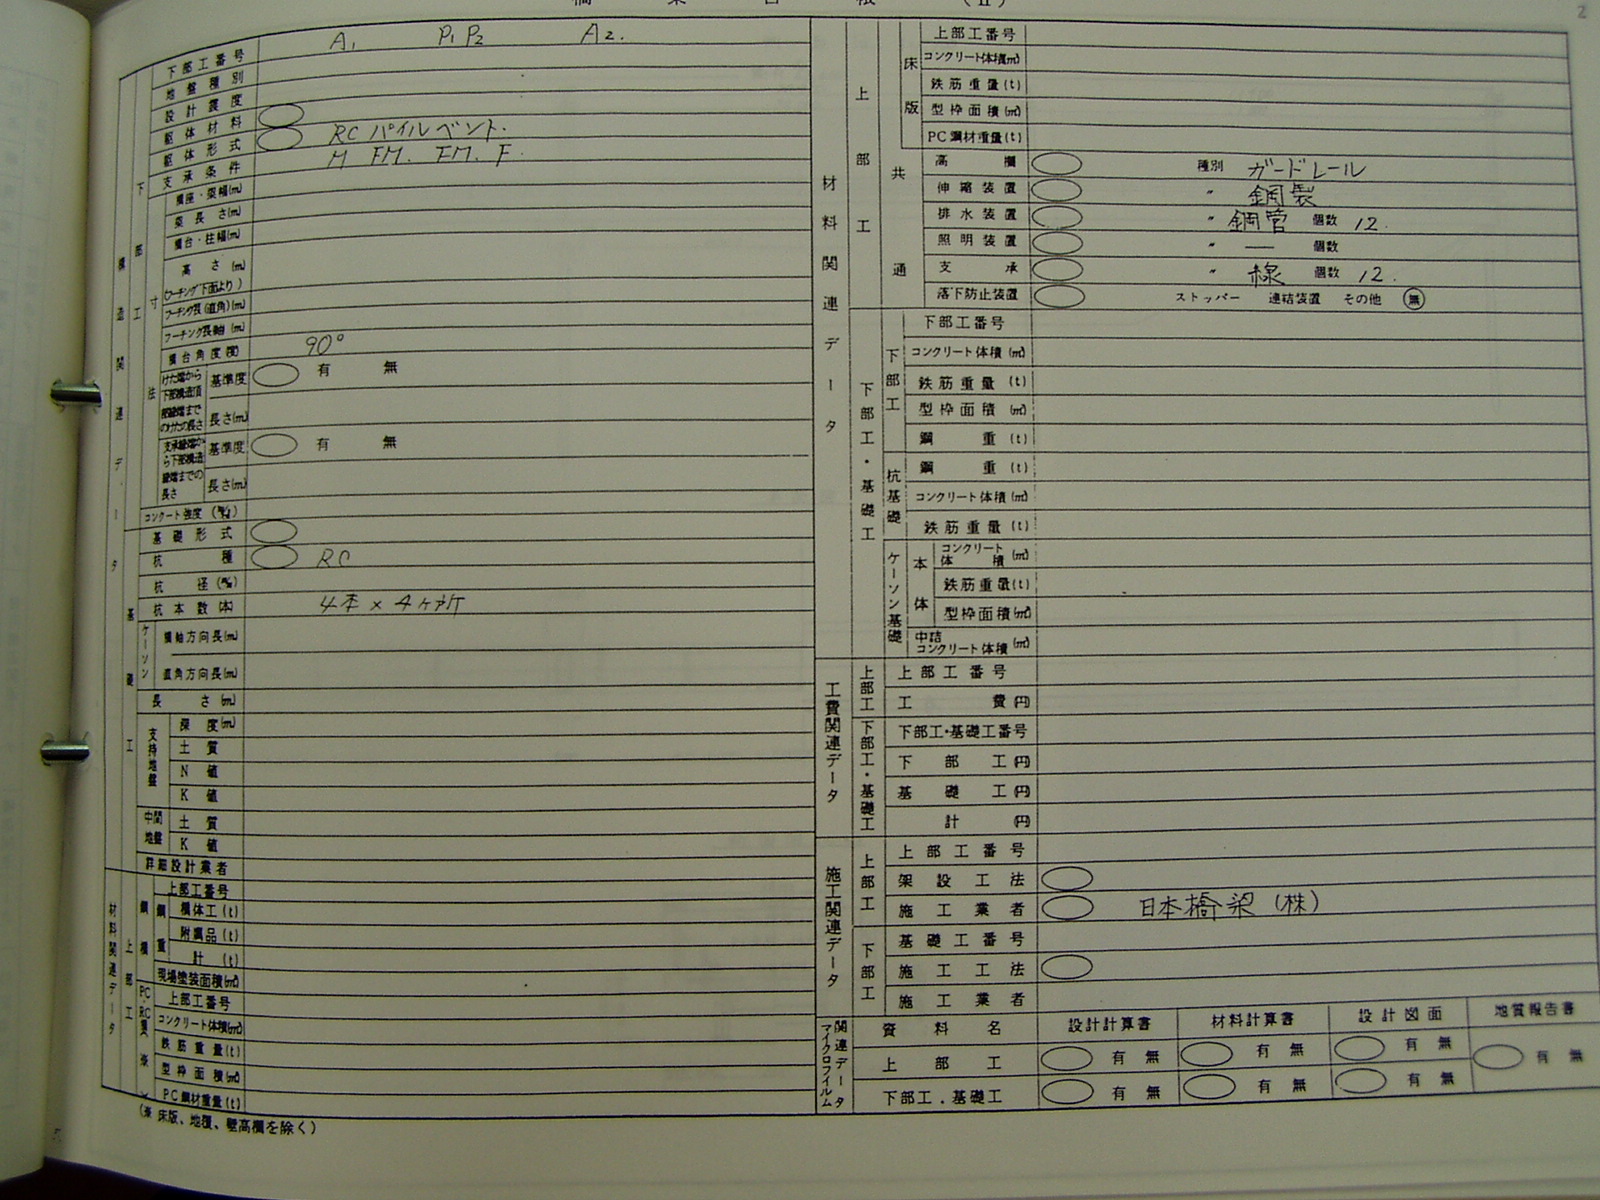 (Ⅱ)
2
下部工番号 A1 P1 P2 A2.
地盤種別
設計震度
躯体材料
躯体形式 RC パイルベント.
支承条件 M FM. FM. F.
橋座・梁幅(m)
梁長さ(m)
橋台・柱幅(m)
高さ(m)
(フーチング下面より)
フーチング長(直角)(m)
フーチング長軸(m)
橋台角度(度) 90°
けた端から下部構造頂部縁端までのけたの長さ 基準度 有 無
長さ(m)
支承縁端から下部構造縁端までの長さ 基準度 有 無
長さ(m)
コンクート強度
基礎形式
杭種 RC
杭径(%)
杭本数(本) 4本×4ヶ所
ケーソン 橋軸方向長(m)
直角方向長(m)
長さ(m)
支持地盤 深度(m)
土質
N値
K値
中間地盤 土質
K値
詳細設計業者
構造関連データ
下部工
寸法
基礎工
材料関連データ
上部工
鋼橋
鋼重
上部工番号
橋体工(t)
附属品(t)
計(t)
現場塗装面積(㎡)
PC・RC 上部工番号
コンクリート体積(㎥)
鉄筋重量(t)
型枠面積(㎡)
PC鋼材重量(t)
(※ 床版、地覆、壁高欄を除く)
材料関連データ
上部工
共通
床版
上部工番号
コンクリート体積(㎥)
鉄筋重量(t)
型枠面積(㎡)
PC鋼材重量(t)
高欄 種別 ガードレール
伸縮装置 〃 鋼製
排水装置 〃 鋼管 個数 12.
照明装置 〃 — 個数
支承 〃 線 個数 12.
落下防止装置 ストッパー 連結装置 その他 無
下部工・基礎工
下部工
下部工番号
コンクリート体積(㎥)
鉄筋重量(t)
型枠面積(㎡)
鋼重(t)
杭基礎
鋼重(t)
コンクリート体積(㎥)
鉄筋重量(t)
ケーソン基礎
本体
コンクリート体積(㎥)
鉄筋重量(t)
型枠面積(㎡)
中詰コンクリート体積(㎥)
工費関連データ
上部工 上部工番号
工費(円)
下部工・基礎工 下部工・基礎工番号
下部工(円)
基礎工(円)
計(円)
施工関連データ
上部工 上部工番号
架設工法
施工業者 日本橋梁(株)
下部工 基礎工番号
施工工法
施工業者
関連データ マイクロフイルム
資料名 設計計算書 材料計算書 設計図面 地質報告書
上部工 有 無 有 無 有 無 有 無
下部工・基礎工 有 無 有 無 有 無